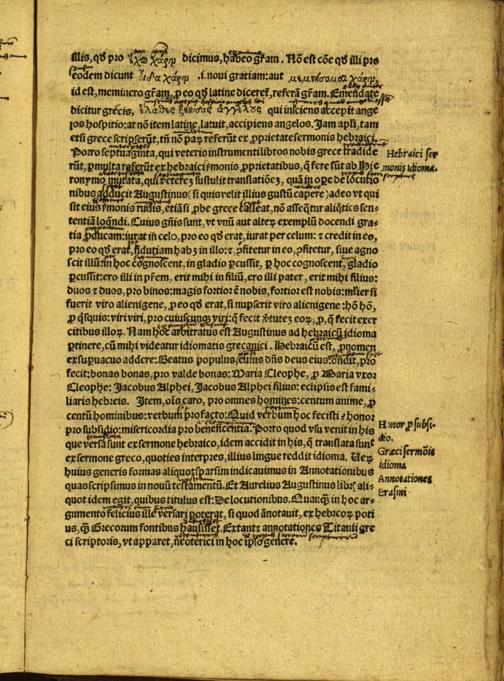 illis, qđ pro ἔχω χάριν dicimus, habeo grãm. Nõ est cõe qđ illi pro
eodem dicunt οἶδα χάριν .i. novi gratiam: aut μεμνήσομαι χάριν,
id est, meminero grãm, ꝓ eo qđ latine diceret, referã grãm. Emendate
dicitur grecis, ἔλαθες ξενίσας ἀγγέλους qui insciens accepit ange
los hospitio: at nõ item latine, latuit, accipiens angelos. Iam apli, tam
etsi grece scripserũt, tñ nõ paꝝ referũt ex ꝓprietate sermonis hebraici.
Porro septuaginta, qui veteris instrumenti libros nobis grece tradide
rũt, ꝑmulta referũt ex hebraici sermonis ꝓprietatibus, ꝗ̃ fere sũt ab Hie
ronymo mutata, qui veterẽ sustulit translationẽ, quã in ope de locutio
nibus adducit Augustinus (si quis velit illius gustũ capere) adeo vt qui
sit eius sermonis rudis, etiã si ꝓbe grece calleat, nõ asseꝗ̃tur aliꝗt̃ sen-
tentiã loꝗndi. Cuius gñis sunt, vt vnũ aut alteꝝ exemplũ docendi gra-
tia ꝓducam: iurat in celo, pro eo qđ erat, iurat per celum: ⁊ credit in eo,
pro eo qđ erat, fiduciam hab₃ in illo: ⁊ ꝓfitetur in eo, ꝓfitetur, siue agno
scit illũ: in hoc cognoscent, in gladio ꝑcussit, ꝓ hoc cognoscent, gladio
ꝑcussit: ero illi in prẽm, erit mihi in filiũ, ero illi pater, erit mihi filius:
duos ⁊ duos, pro binos: magis fortior ẽ nobis, fortior est nobis: mlier si
fuerit viro alienigene, ꝓ eo qđ erat, si nupserit viro alienigene: hõ hõ,
ꝓ ꝗsquis: viri viri, pro cuiuscunqȝ viri: ꝗ̃ fecit v̓tutez eoꝝ, ꝓ, ꝗ̃ fecit exer
citibus illoꝝ. Nam hoc arbitratus est Augustinus ad hebraicũ idioma
ꝑtinere, cũ mihi videatur idiomatis grecanici. Hebraicũ est, ꝓnomen
ex supuacuo addere: Beatus populus, cuius dñs deus eius: condit, pro
fecit: bonas bonas, pro valde bonas: Maria Cleophe, ꝓ Maria vxor
Cleophe: Jacobus Alphei, Jacobus Alphei filius: eclipsis est fami-
liaris hebreis. Item, oĩs caro, pro omnes homines: centum anime, ꝓ
centũ hominibus: verbum pro facto: Quid verbum hoc fecisti ⁊ honor
pro subsidio: misericordia pro beneficentia. Porro quod vsu venit in his
que versa sunt ex sermone hebraico, idem accidit in his, ꝗ̃ translata sunt
ex sermone greco, quoties interpres, illius lingue reddit idioma. Ueꝝ
huius generis formas aliquot sparsim indicauimus in Annotationibus
quas scripsimus in nouũ testamentũ. Et Aurelius Augustinus libr̃ ali-
quot idem egit, quibus titulus est: De locutionibus. Quanꝗ̃ in hoc ar-
gumento felicius ille versari poterat, si quod ãnotauit, ex hebreoꝝ poti
us, ꝗ̃ Grecorum fontibus hausisset. Extant annotationes Titanii gre
ci scriptoris, vt apparet, neoterici in hoc ipso genere.
Hebraici ser
monis idioma.
Honor ꝓ subsi-
dio.
Græci sermõis
idioma
Annotationes
Erasmi